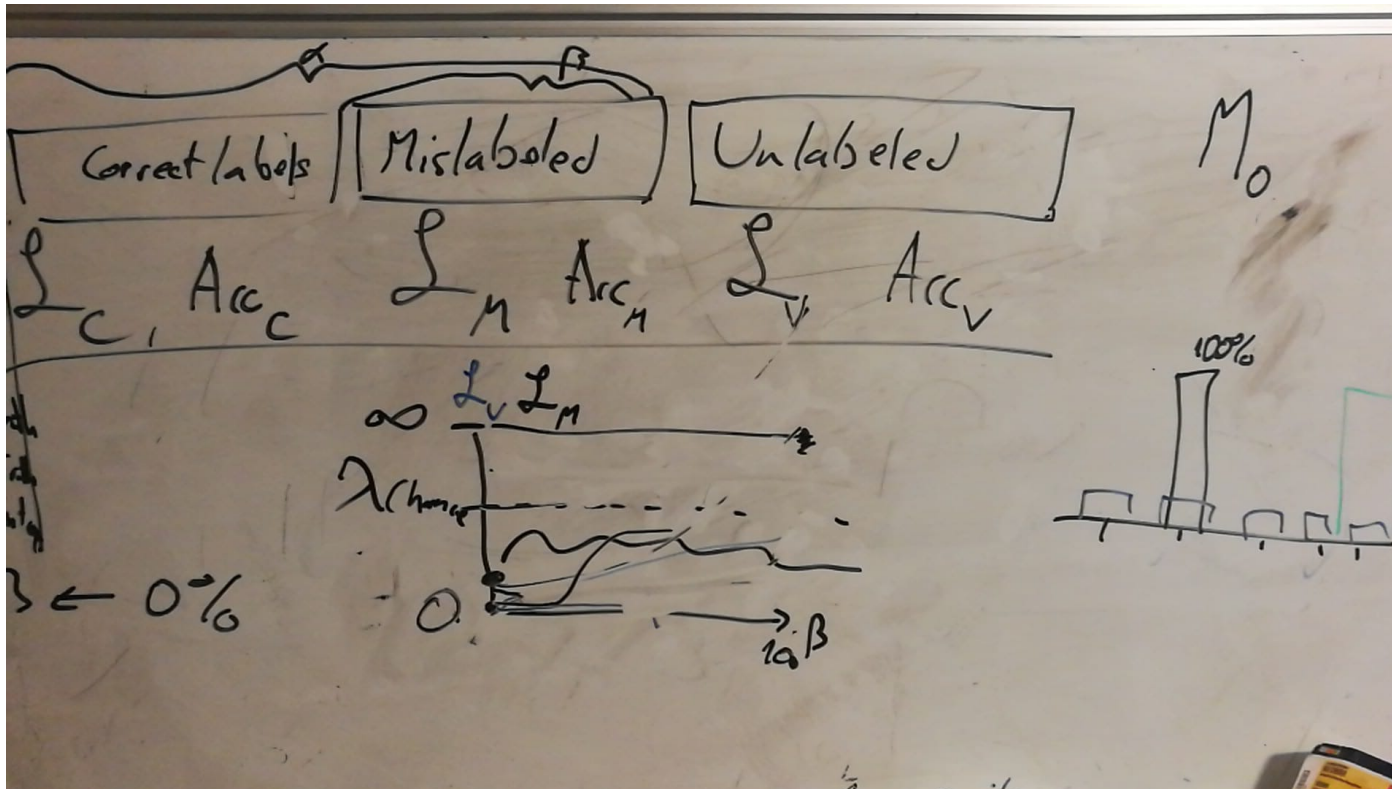 α β
Correct labels Mislabeled Unlabeled M₀
ℒ_C, Acc_C ℒ_M Acc_M ℒ_V Acc_V
100%
∞ ℒ_V ℒ_M
λ
← 0%
0
β